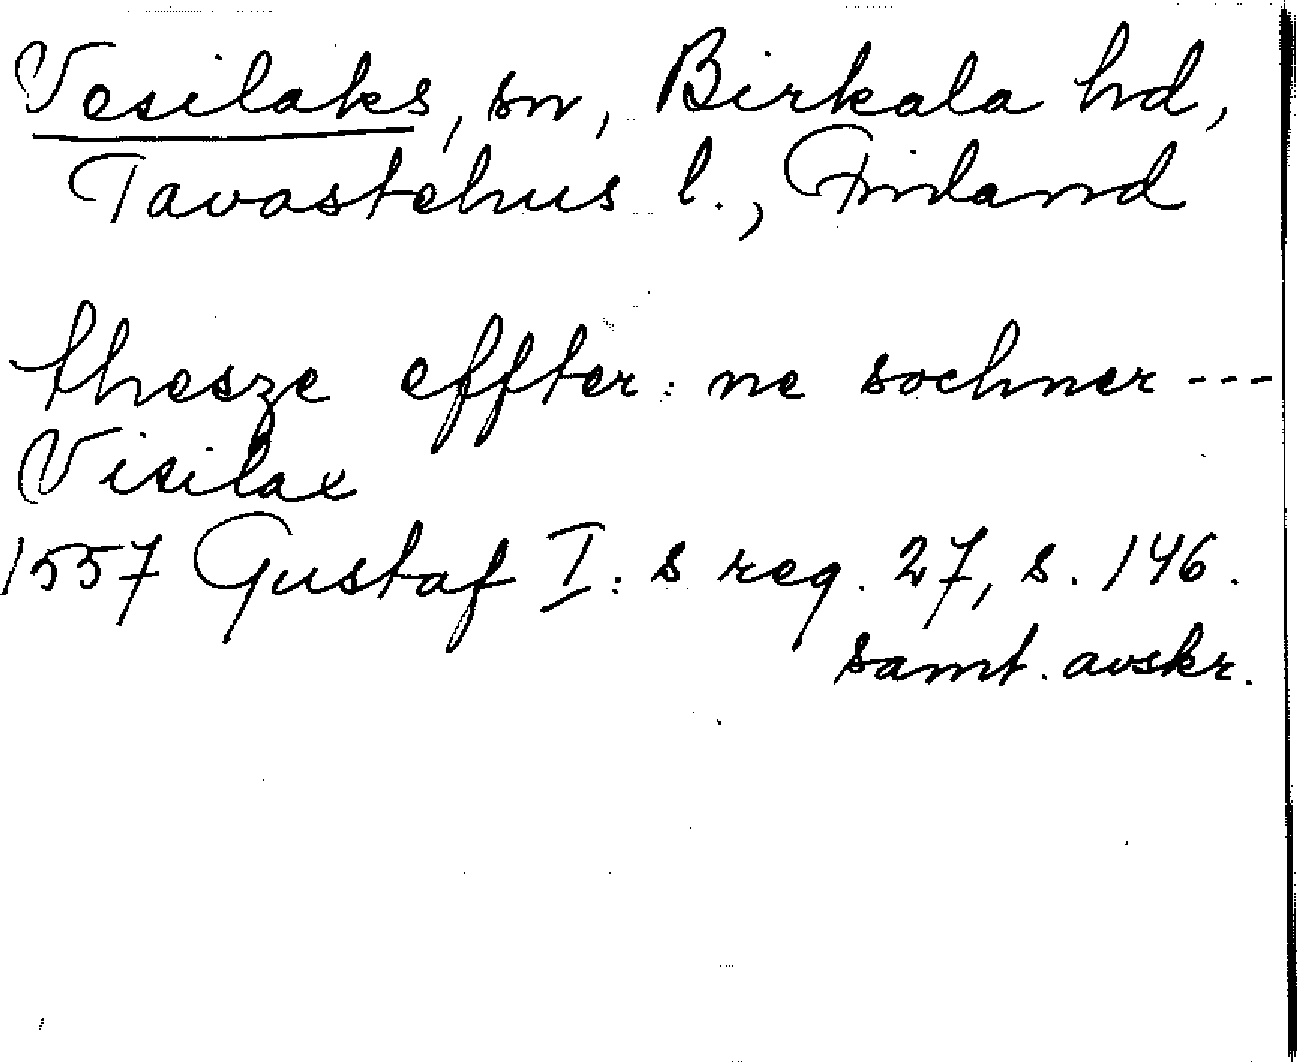 Vesilaks, sn, Birkala hd,
Tavastehus l., Finland
thesze effter: ne sochner ---
Visilax
1557 Gustaf I: s reg. 27, s. 146.
samt. avskr.